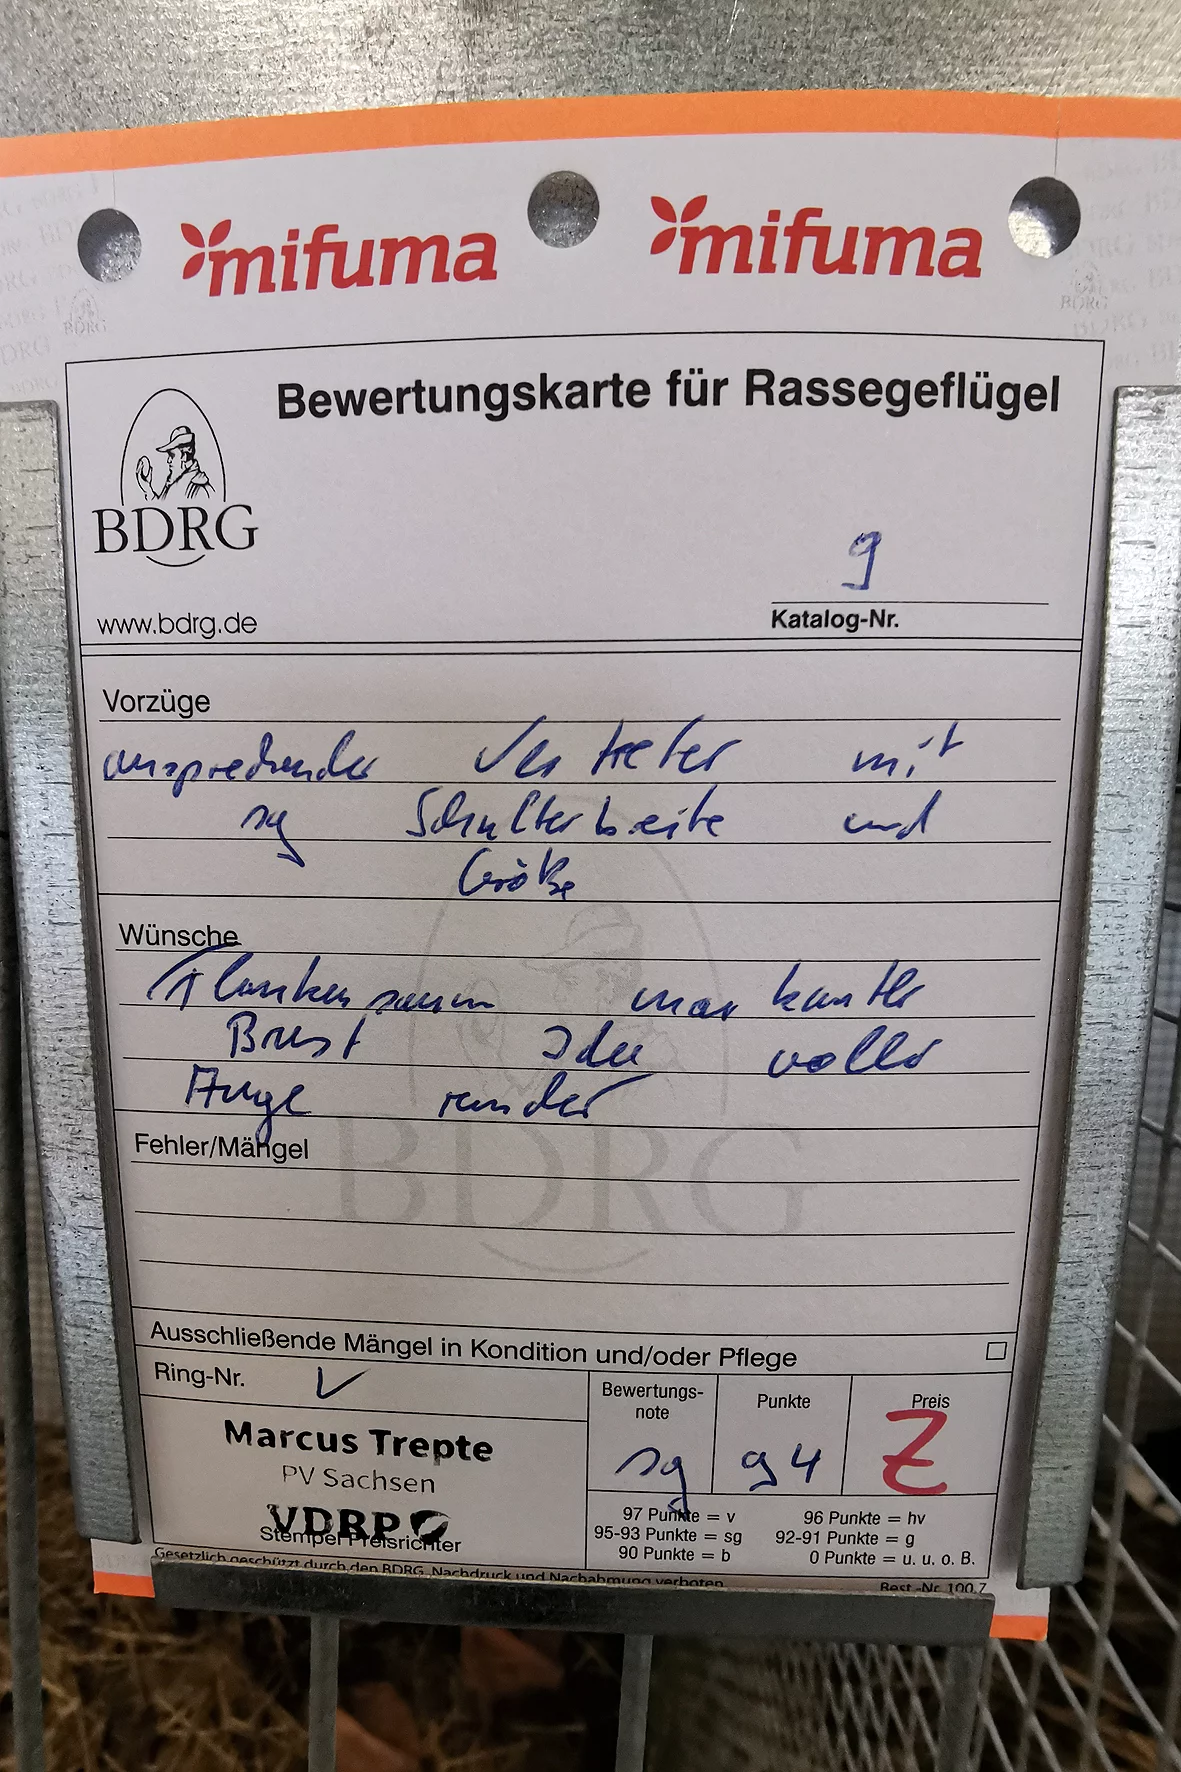 mifuma mifuma
Bewertungskarte für Rassegeflügel
BDRG
www.bdrg.de
9
Katalog-Nr.
Vorzüge
ansprechender Vertreter mit
sg Schulterbreite und
Größe
Wünsche
Flankensaum markanter
Brust voller
Auge runder
Fehler/Mängel
BDRG
Ausschließende Mängel in Kondition und/oder Pflege
Ring-Nr.
Marcus Trepte
PV Sachsen
VDRP
Stempel Preisrichter
Bewertungs-
note
sg
Punkte
94
Preis
Z
97 Punkte = v 96 Punkte = hv
95-93 Punkte = sg 92-91 Punkte = g
90 Punkte = b 0 Punkte = u. u. o. B.
Gesetzlich geschützt durch den BDRG. Nachdruck und Nachahmung verboten
Best.-Nr. 100.7